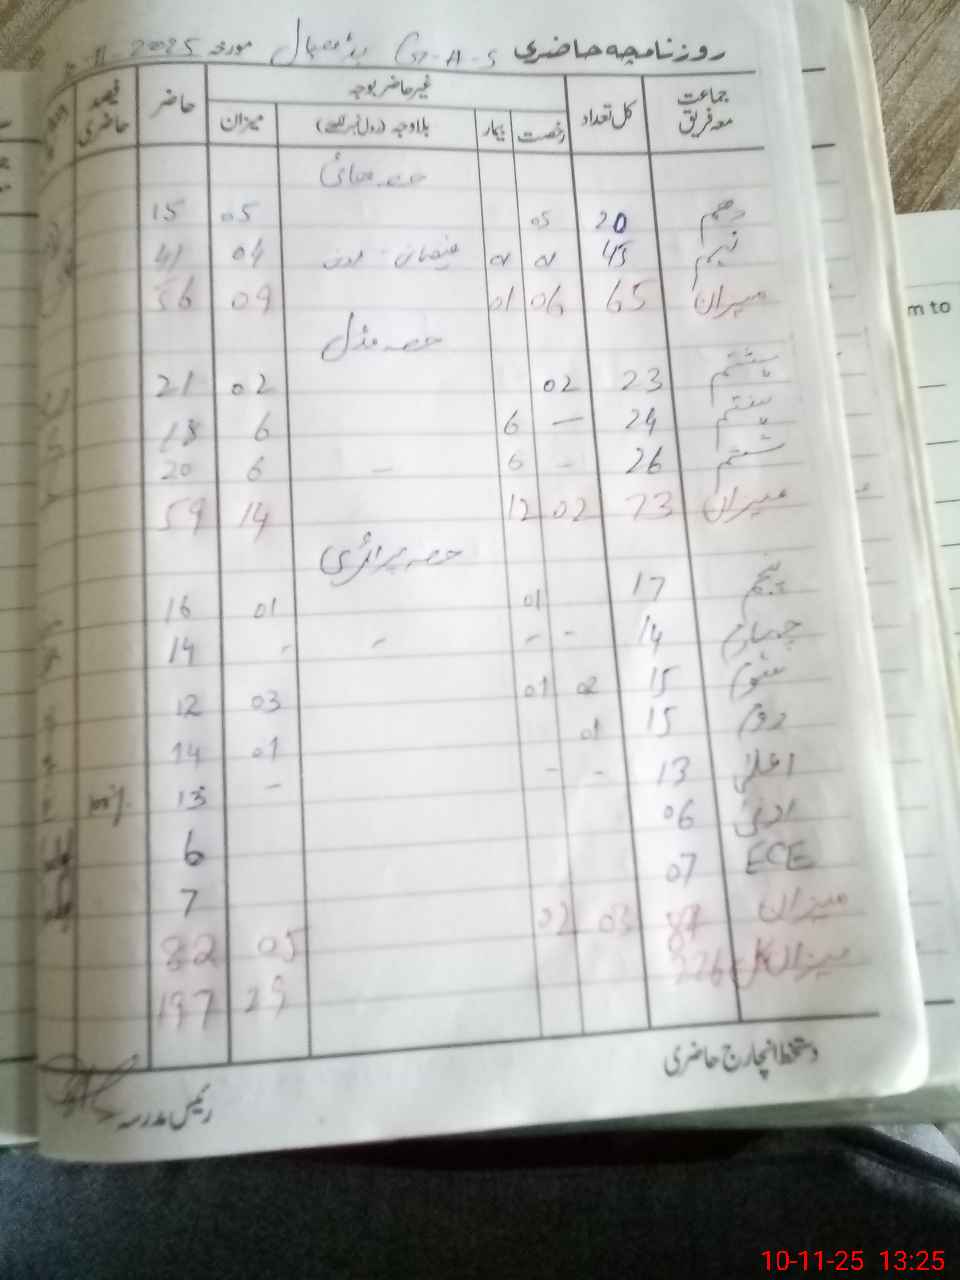 روزنامچہ حاضری G.H.S مورخہ 2025
جماعت معہ فریق کل تعداد غیر حاضر بوجہ حاضر فیصد حاضری
رخصت بیمار بلاوجہ (رول نمبر لکھیے) میزان
حصہ ہائی
دہم 20 05 05 15
نہم 45 04 41
میزان 65 06 01 09 56
حصہ مڈل
ہشتم 23 02 02 21
ہفتم 24 — 6 6 18
ششم 26 - 6 - 6 20
میزان 73 02 12 14 59
حصہ پرائمری
پنجم 17 01 01 16
چہارم 14 - - - - 14
سوم 15 02 01 03 12
دوم 15 01 01 14
اعلیٰ 13 - - - 13 100%
ادنیٰ 06 6
ECE 07 7
میزان 87 03 02 05 82
میزان کل 226 29 197
دستخط انچارج حاضری
رئیس مدرسہ
m to
10-11-25 13:25